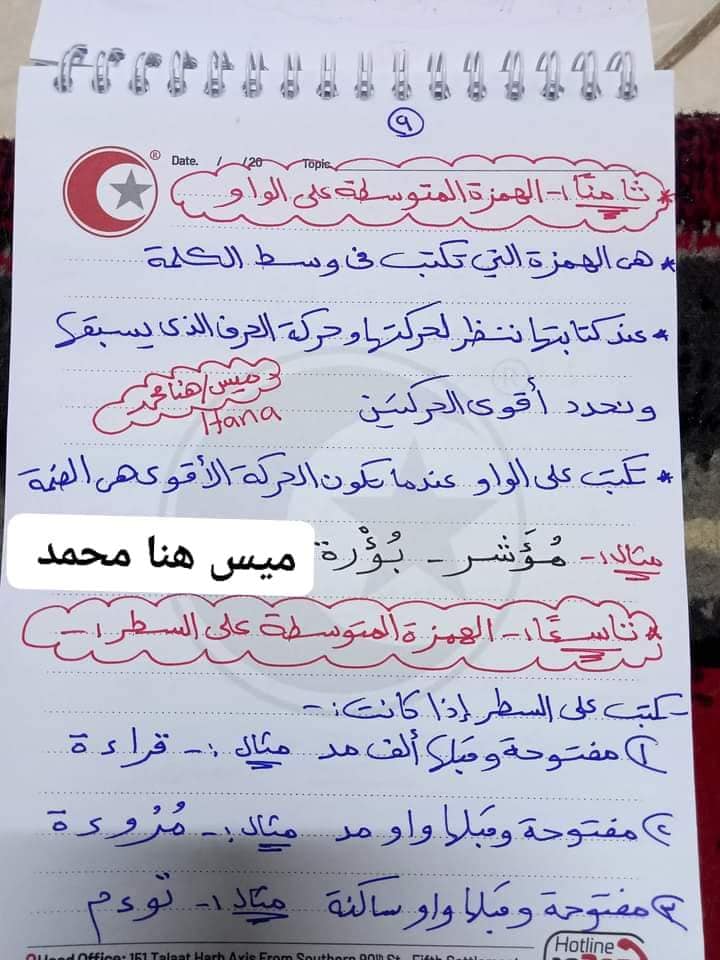 ٩
Date. / /20 Topic
* ثامنًا :- الهمزة المتوسطة على الواو
* هى الهمزة التي تكتب فى وسط الكلمة
* عند كتابتها ننظر لحركتها وحركة الحرف الذى يسبقها
ميس / هنا محمد
ونحدد أقوى الحركتين
Hana
* تكتب على الواو عندما تكون الحركة الأقوى هى الضمة
مثال :- مُؤَشر - بُؤْرة
ميس هنا محمد
* تاسعًا :- الهمزة المتوسطة على السطر :-
- تكتب على السطر إذا كانت :-
١) مفتوحة وقبلها ألف مد مثال :- قراءة
٢) مفتوحة وقبلها واو مد مثال :- مُرُوءة
٣) مفتوحة وقبلها واو ساكنة مثال :- توءم
Head Office: 151 Talaat Harb Axis From Southern 90th St., Fifth Settlement
Hotline